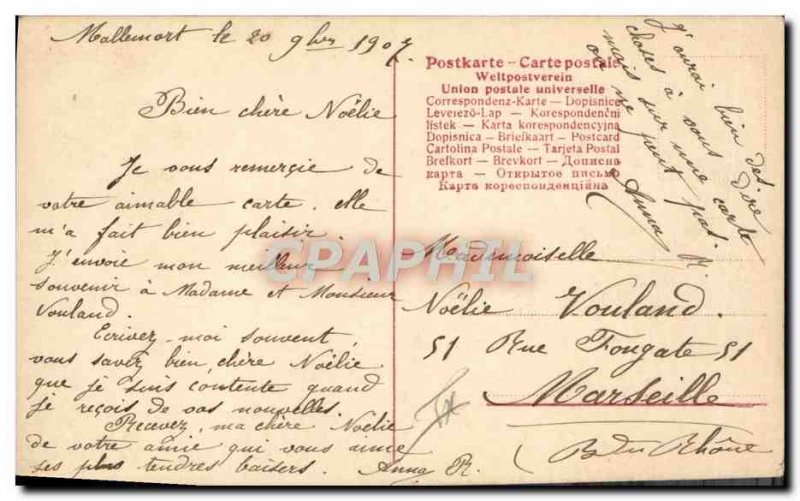 Mallemort le 20 9bre 1907.
Bien chère Noëlie
Je vous remergie de
votre aimable carte, elle
m'a fait bien plaisir.
J'envoie mon meilleur
souvenir à Madame et Monsieur
Vouland.
Ecrivez-moi souvent,
vous savez bien, chère Noëlie
que je suis contente quand
je reçois de vos nouvelles.
Recevez, ma chère Noëlie
de votre amie qui vous aime
ses plus tendres baisers. Anna R.
Postkarte – Carte postale
Weltpostverein
Union postale universelle
Correspondenz-Karte – Dopisnice
Levelező-Lap – Korespondenční
lístek – Karta korespondencyjna
Dopisnica – Briefkaart – Postcard
Cartolina Postale – Tarjeta Postal
Brefkort – Brevkort – Дописна
карта – Открытое письмо
Карта кореспонденційна
J'aurai bien des
choses à vous dire
mais sur une carte
on ne peut pas.
Anna R.
Mademoiselle
Noëlie Vouland.
51 Rue Fongate 51
Marseille
B du Rhône
CPAPHIL